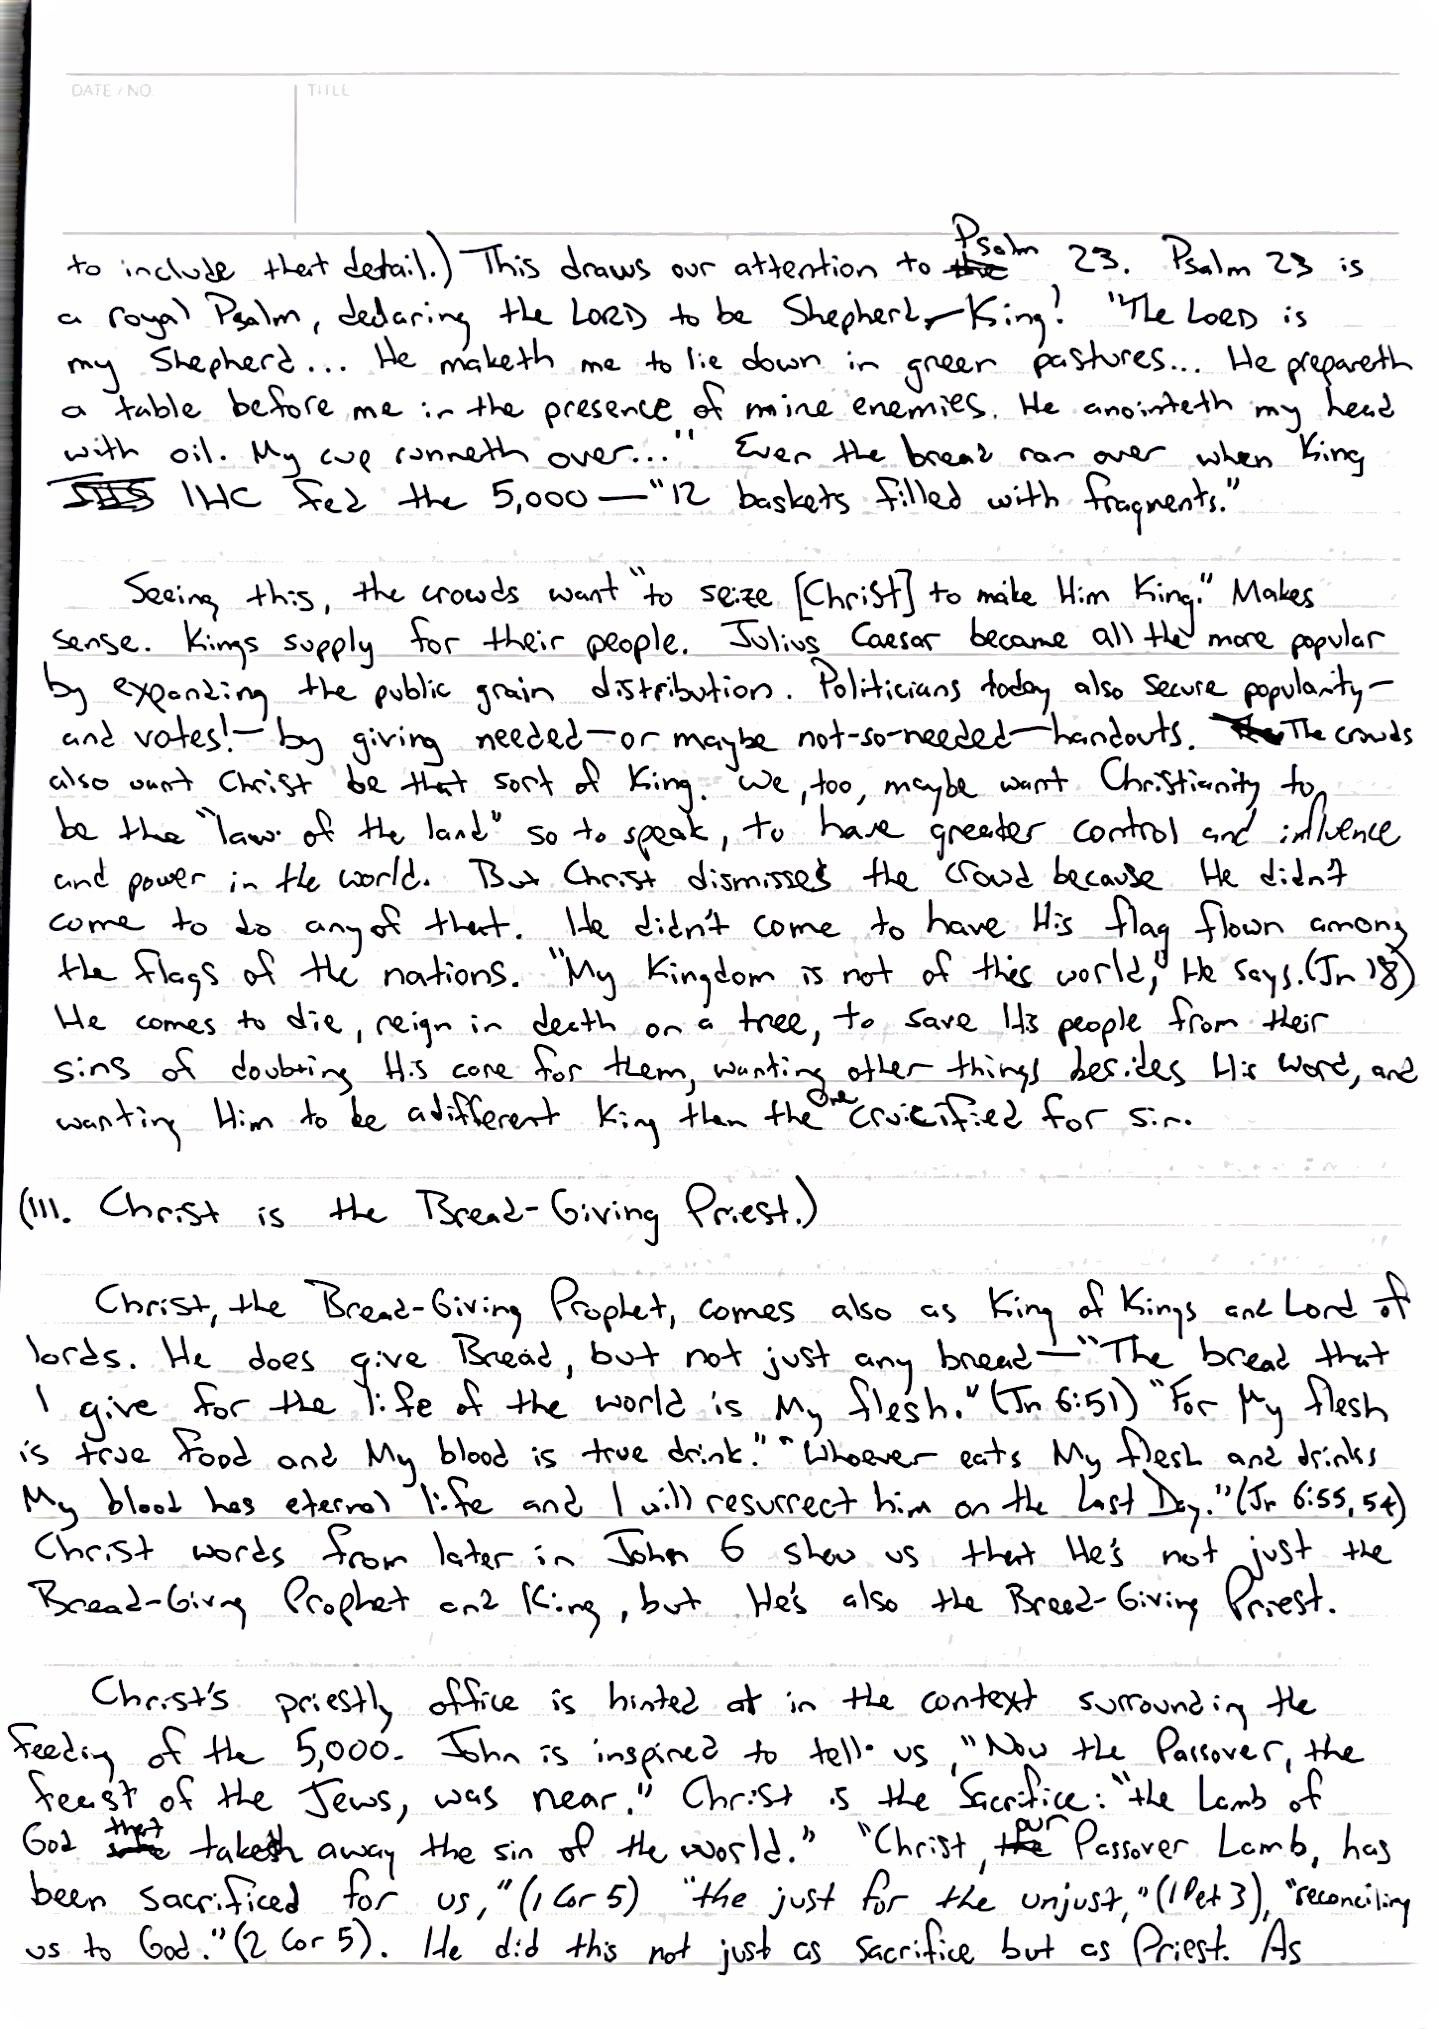 DATE / NO
TITLE
to include that detail.) This draws our attention to Psalm 23. Psalm 23 is
a royal Psalm, declaring the LORD to be Shepherd-King! "The LORD is
my Shepherd... He maketh me to lie down in green pastures... He prepareth
a table before me in the presence of mine enemies. He anointeth my head
with oil. My cup runneth over..." Even the bread ran over when King
IHC fed the 5,000—"12 baskets filled with fragments."
Seeing this, the crowds want "to seize [Christ] to make Him King." Makes
sense. Kings supply for their people. Julius Caesar became all the more popular
by expanding the public grain distribution. Politicians today also secure popularity—
and votes!—by giving needed—or maybe not-so-needed—handouts. The crowds
also want Christ be that sort of King. We, too, maybe want Christianity to
be the "law of the land" so to speak, to have greater control and influence
and power in the world. But Christ dismisses the crowd because He didn't
come to do any of that. He didn't come to have His flag flown among
the flags of the nations. "My Kingdom is not of this world," He says. (Jn 18)
He comes to die, reign in death on a tree, to save His people from their
sins of doubting His care for them, wanting other things besides His Word, and
wanting Him to be a different King than the One crucified for sin.
(III. Christ is the Bread-Giving Priest.)
Christ, the Bread-Giving Prophet, comes also as King of Kings and Lord of
lords. He does give Bread, but not just any bread—"The bread that
I give for the life of the world is My flesh." (Jn 6:51) "For My flesh
is true food and My blood is true drink." "Whoever eats My flesh and drinks
My blood has eternal life and I will resurrect him on the Last Day." (Jn 6:55, 54)
Christ words from later in John 6 show us that He's not just the
Bread-Givng Prophet and King, but He's also the Bread-Giving Priest.
Christ's priestly office is hinted at in the context surrounding the
feeding of the 5,000. John is inspired to tell us, "Now the Passover, the
feast of the Jews, was near." Christ is the Sacrifice: "the Lamb of
God that taketh away the sin of the world." "Christ, our Passover Lamb, has
been sacrificed for us," (1 Cor 5) "the just for the unjust," (1 Pet 3), "reconciling
us to God." (2 Cor 5). He did this not just as Sacrifice but as Priest. As